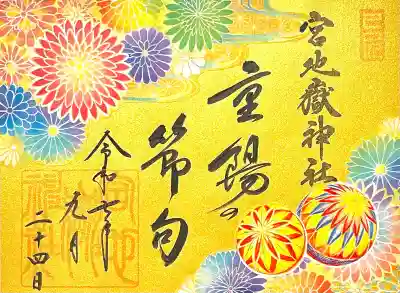 宮地嶽神社
重陽の
節句
令和七年
月
二十四日